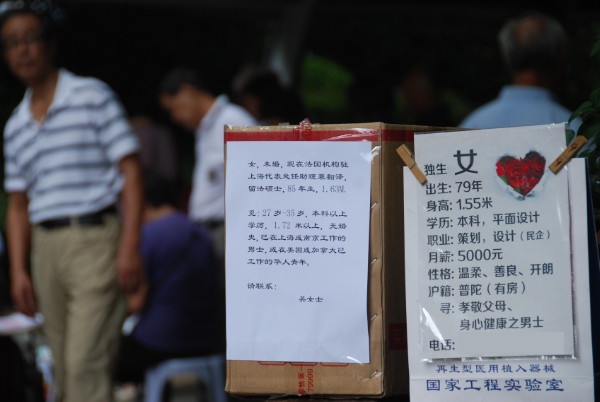 女，未婚，现在法国机构驻
上海代表处任助理兼翻译，
留法硕士，85年生，1.63M.
见：27岁-35岁，本科以上
学历，1.72米以上，无婚
史，已在上海或南京工作的
男士，或在美国或加拿大已
工作的华人青年。
请联系：
吴女士
独生 女
出生：79年
身高：1.55米
学历：本科，平面设计
职业：策划，设计（民企）
月薪：5000元
性格：温柔、善良、开朗
沪籍：普陀（有房）
寻：孝敬父母、
身心健康之男士
电话：
再生型医用植入器械
国家工程实验室